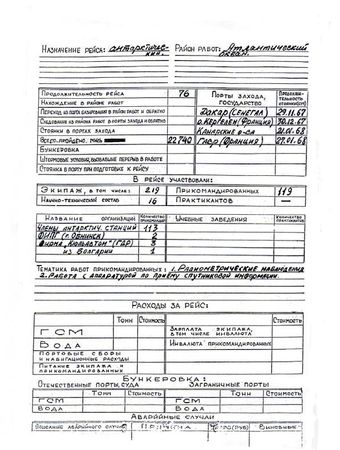 Назначение рейса: антарктичес-
кий.
Район работ: Атлантический
океан.
Продолжительность рейса 76
Нахождение в районе работ
Переход из порта базирования в район работ и обратно
Следование из района работ в порты захода и обратно
Стоянки в портах захода
Всего пройдено, миль 22.740
Бункеровка
Штормовые условия, вызвавшие перерыв в работе
Стоянка в порту при подготовке к рейсу
Порты захода, государство
Дакар (Сенегал) 29.11.67
о. Кергелен (Франция) 30.12.67
Канарские о-ва 21.01.68
Гавр (Франция) 27.01.68
В рейсе участвовали:
Экипаж, в том числе: 219
Научно-технический состав 16
Прикомандированных 119
Практикантов —
Название организаций
Количество
Учебные заведения
Количество практикантов
Члены антарктич. станций 113
(г. Обнинск) 2
(ГДР) 3
из Болгарии 1
Тематика работ прикомандированных: 1. Радиометрические наблюдения
2. Работа с аппаратурой по приёму спутниковой информации.
Расходы за рейс:
Тонн Стоимость
Стоимость
ГСМ
Вода
Портовые сборы
и навигационные расходы
Питание экипажа и
прикомандированных
Зарплата экипажа,
в том числе:
Инвалюта прикомандированных
Бункеровка:
Отечественные порты, суда
Заграничные порты
Тонн Стоимость
Тонн Стоимость
ГСМ
Вода
ГСМ
Вода
Аварийные случаи
Описание аварийного случая
Причина
Виновные